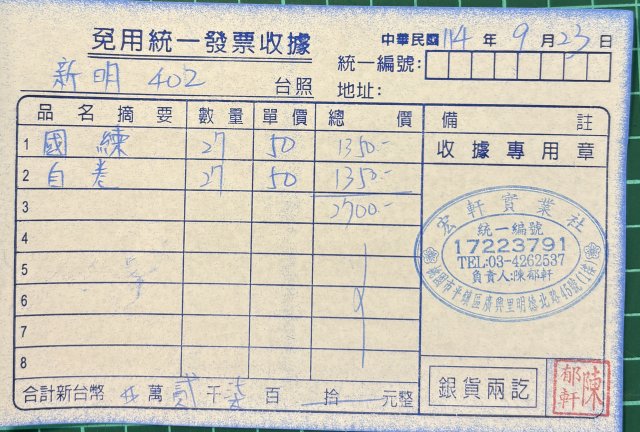 免用統一發票收據
中華民國 114 年 9 月 23 日
新明 402 台照
統一編號:
地址:
品名摘要 數量 單價 總價 備註
1 國練 27 50 1350.-
收據專用章
2 自卷 27 50 1350.-
3 2700.-
4
5
6
7
8
宏軒實業社
統一編號
17223791
TEL:03-4262537
負責人:陳郁軒
桃園市平鎮區廣興里明德北路45號(1樓)
合計新台幣 萬貳仟柒百拾元整
銀貨兩訖
陳郁軒